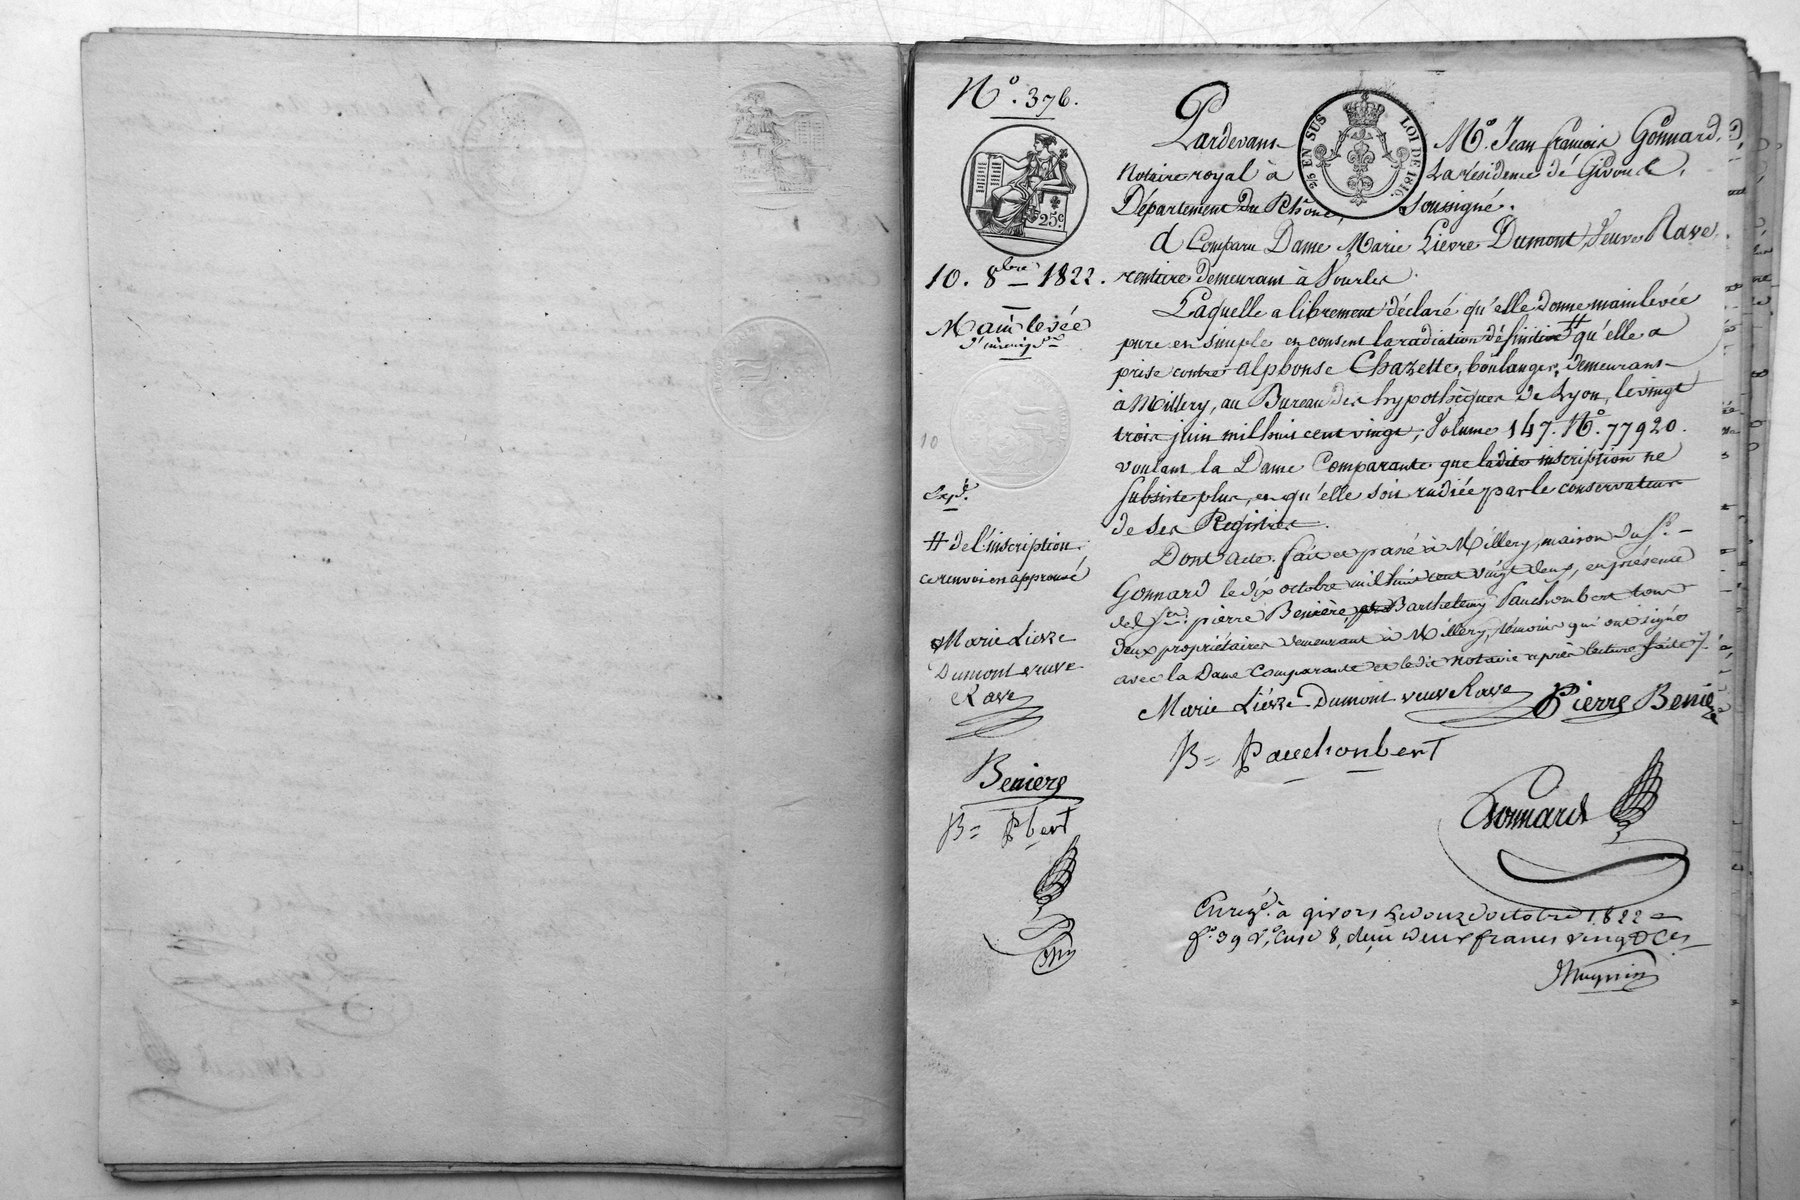 N° 376.
25c.
10. 8bre 1822.
Mainlevée
d'inscrip.on
10
Exp.é
# de l'inscription
ce renvoi en approuvé
Marie Lievre
Dumont veuve
Rave
Beniere
B= Pbert
25 EN SUS LOI DE 1816.
Pardevant Me. Jean françois Gonnard,
Notaire royal à La résidence de Givors,
Département du Rhône, Soussigné.
a Comparu Dame Marie Lievre Dumont, Veuve Rave
rentiere demeurant à Vourles.
Laquelle a librement déclaré qu'elle donne mainlevée
pure et simple et consent la radiation définitive # qu'elle a
prise contre alphonse Chazette, boulanger, demeurant
à Millery, au Bureau des hypothèques de Lyon, le vingt
trois juin mil huit cent vingt, Volume 147. N°. 77920.
voulant la Dame Comparante que ladite inscription ne
subsiste plus, et qu'elle soit radiée par le conservateur
de ses Registres.
Dont acte. fait et passé à Millery, maison du Sr.
Gonnard le dix octobre mil huit cent vingt deux, en présence
de Srs. pierre Beniere, et Barthelemy Pauchonbert tous
deux propriétaires demeurant à Millery, témoins qui ont signé
avec la Dame Comparante et ledit notaire après lecture faite
Marie Liévre Dumont veuve Rave Pierre Beniere
B= Pauchonbert
Gonnard
Enregé. à givors le douze octobre 1822
fo. 39 vo. case 8, reçu deux francs vingt ces